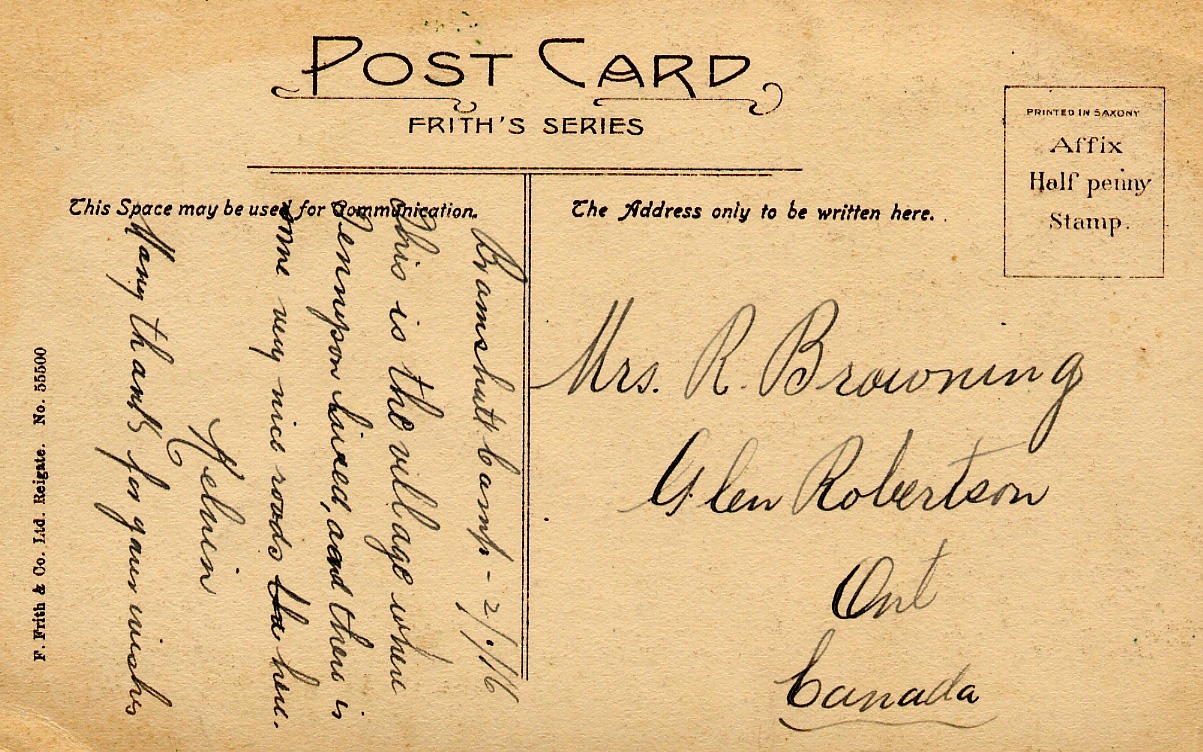 POST CARD
FRITH'S SERIES
PRINTED IN SAXONY
Affix
Half penny
Stamp.
This Space may be used for Communication.
The Address only to be written here.
Bramshott Camp -
This is the village where
Tennyson lived, and there is
some very nice roads here.
Melvin
Many thanks for your wishes
Mrs. R. Browning
Glen Robertson
Ont
Canada
F. Frith & Co. Ltd. Reigate. No. 55500